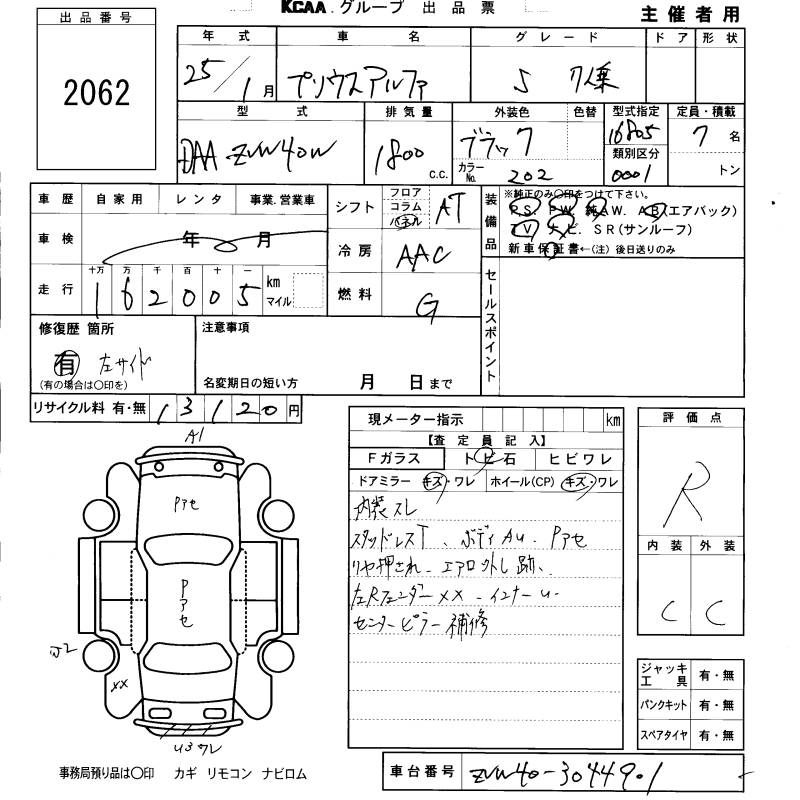 KCAA.グループ 出品票
主催者用
出品番号
2062
年式 車名 グレード ドア 形状
25/1月 プリウスアルファ S 7人乗
型式 排気量 外装色 色替 型式指定 定員・積載
DAA-ZVW40W 1800 c.c. ブラック 16805 7名
カラーNo. 202 類別区分 0001 トン
車歴 自家用 レンタ 事業.営業車
シフト フロア コラム パネル AT
装備品 ※純正のみ〇印をつけて下さい。
P S. P W. 純A W. A B(エアバック)
T V. ナビ. S R(サンルーフ)
新車保証書←(注) 後日送りのみ
車検 年 月
冷房 AAC
走行 十万 万 千 百 十 一
162005 km マイル
燃料 G
セールスポイント
修復歴 箇所
有 左サイド
(有の場合は〇印を)
注意事項
名変期日の短い方 月 日まで
リサイクル料 有・無 13120円
現メーター指示 km
【査定員記入】
Fガラス トビ石 ヒビワレ
ドアミラー キズ・ワレ ホイール(CP) キズ・ワレ
内装スレ
スタッドレスT、ボディAU. Pアセ
リヤ押され、エアロ外し跡、
左Rフェンダーxx、インナーu.
センターピラー補修
評価点
R
内装 外装
C C
ジャッキ工具 有・無
パンクキット 有・無
スペアタイヤ 有・無
A1
Pアセ
Pアセ
xx
U3ワレ
事務局預り品は〇印 カギ リモコン ナビロム
車台番号 ZVW40-3044901